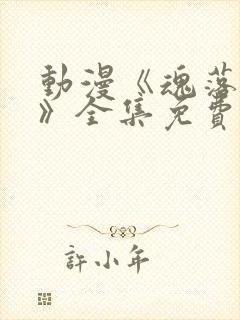 動漫《魂落
》全集免費
許小年